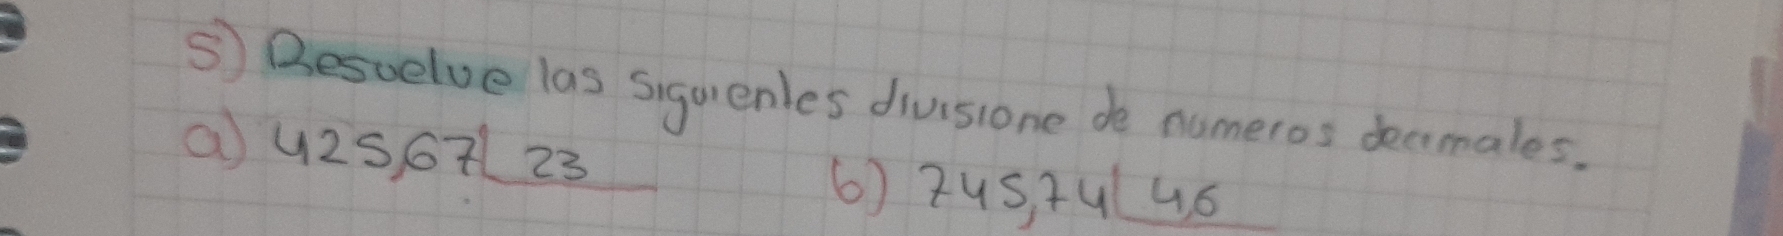 5) Resuelve las siguientes divisione de numeros decimales.
a) 425,67 23 b) 745,74 4,6